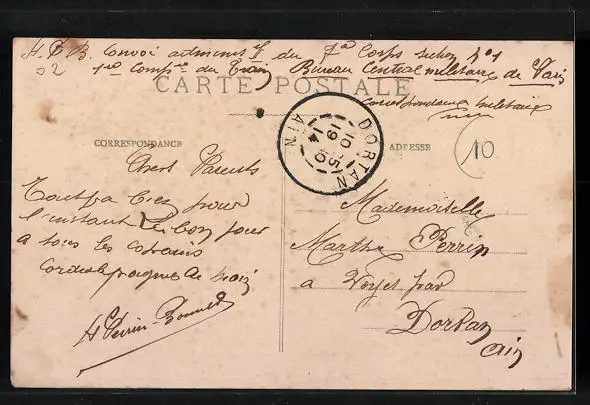 H. P. B. Convoi administif du 7e Corps section No 1
1re Compie du Train Bureau Central militaire de Paris
CARTE POSTALE
correspondance militaire
CORRESPONDANCE
ADRESSE
DORTAN
10-25
19 10
14
AIN
10
Chers Parents
Tout va bien pour
l'instant Le bonjour
a tous les copains
Cordiale poignée de main
H Perrin-Bonnet
Mademoiselle
Marthe Perrin
a Veyes par
Dortan
Ain